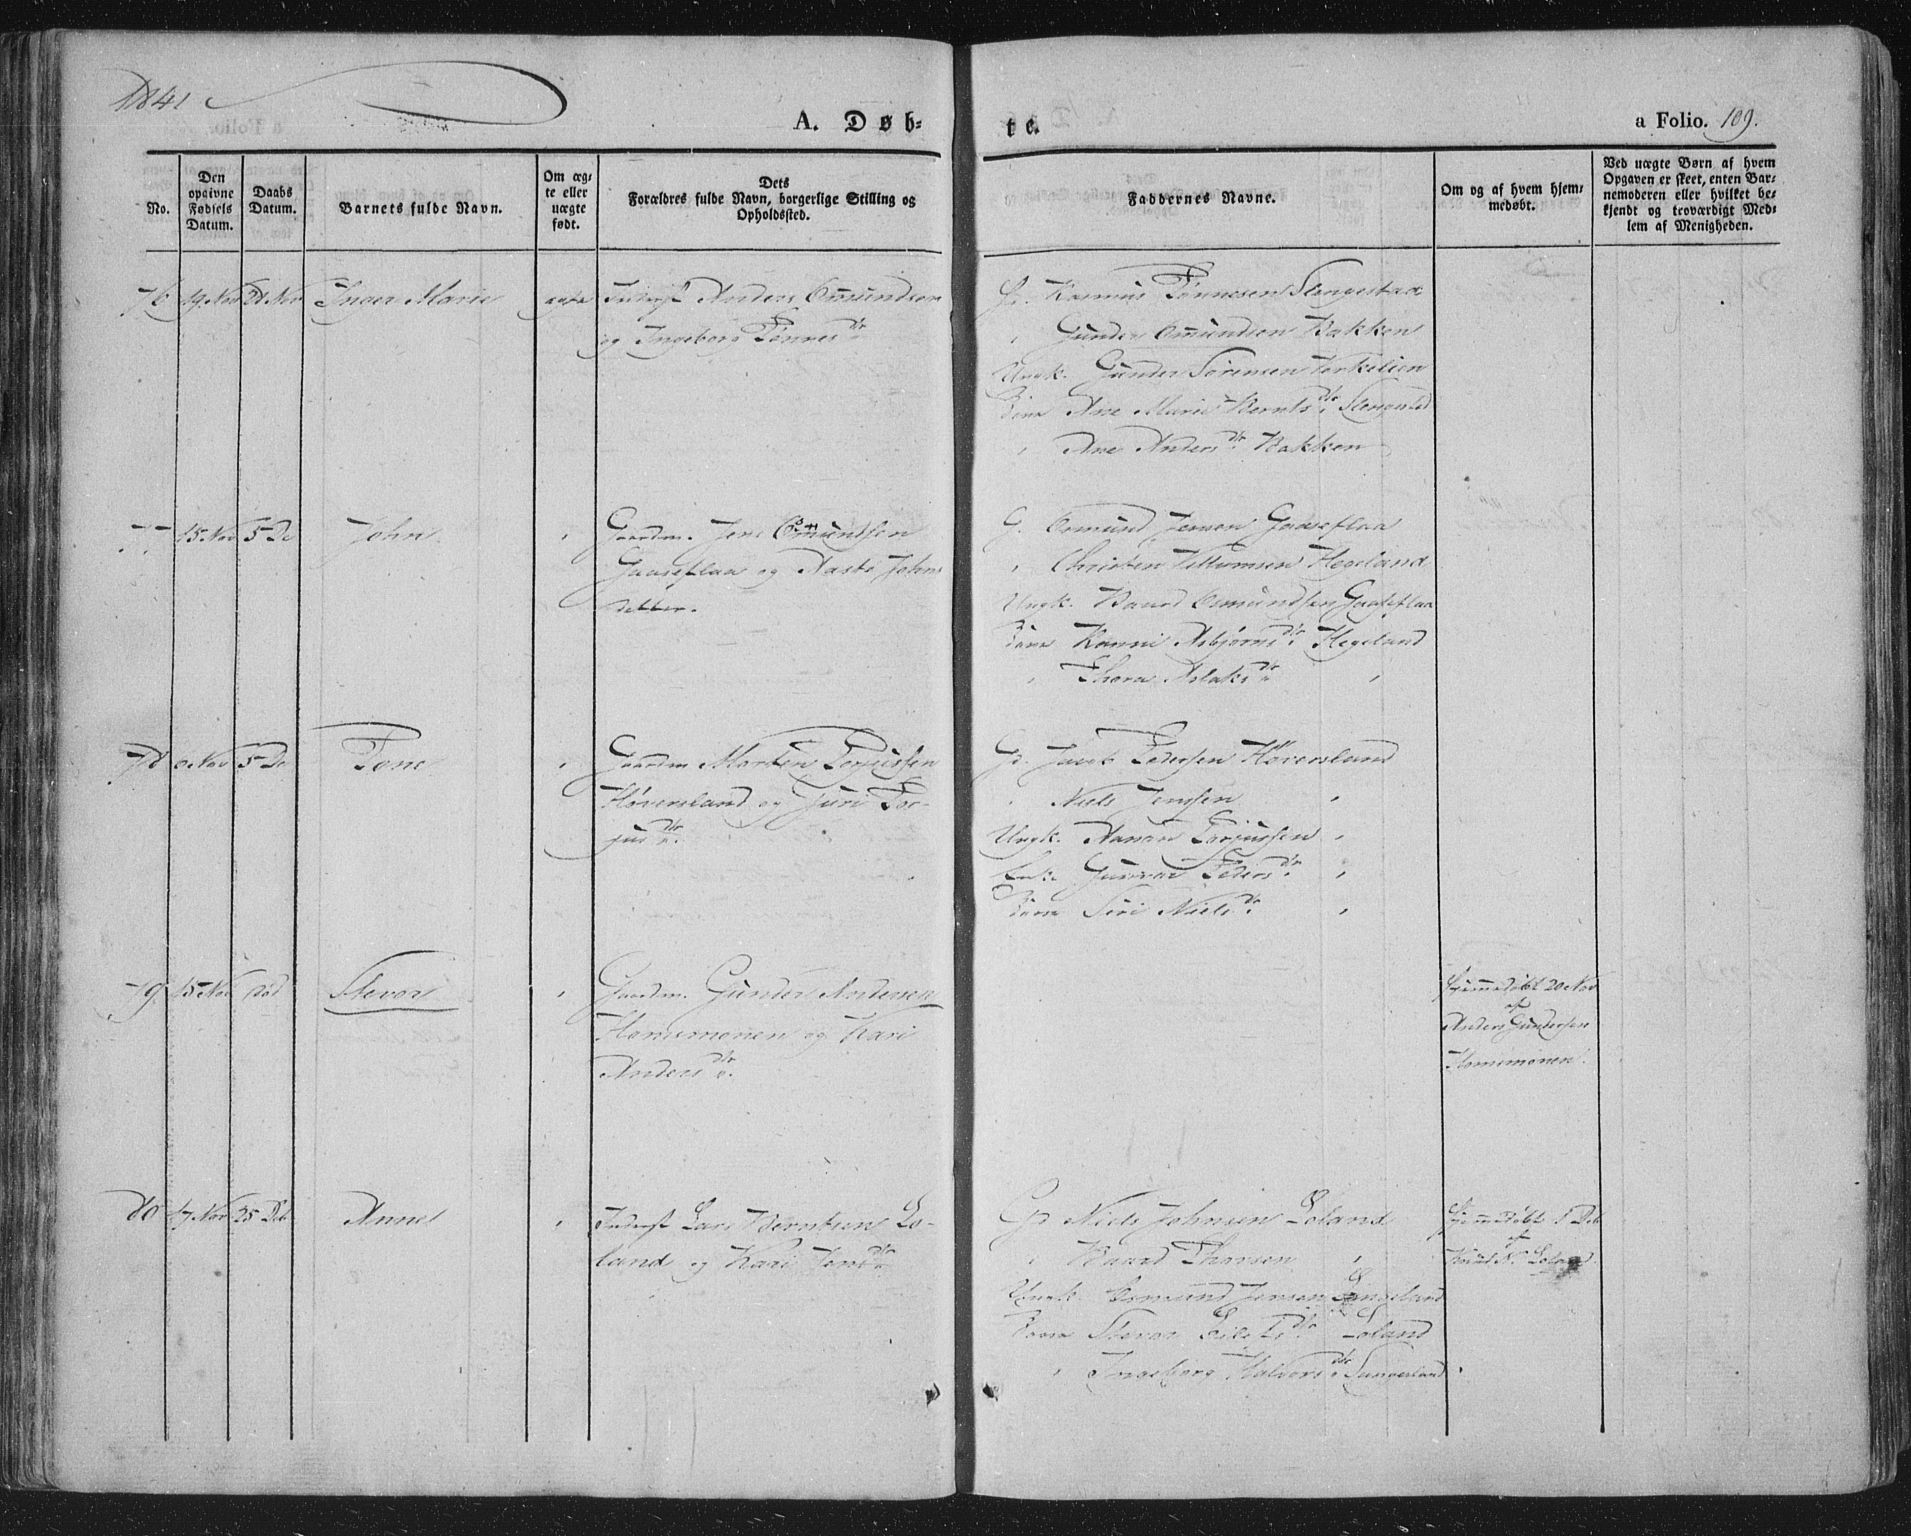 1841
A. Døb-
te.
a Folio. 109.
No.
Den opgivne Fødsels Datum.
Daabs Datum.
Barnets fulde Navn.
Om ægte eller uægte født.
Dets
Forældres fulde Navn, borgerlige Stilling og
Opholdssted.
Faddernes Navne.
Om og af hvem hjem-
medøbt.
Ved uægte Børn af hvem
Opgaven er skeet, enten Bar-
nemoderen eller hvilket be-
kjendt og troværdigt Med-
lem af Menigheden.
76 19 Nov 21 Nov Inger Marie ægte Inderst Anders Omundsen
og Ingeborg Tønnesdr
Rasmus Tønnesen Stengestad
Gunder Omundsen Bakken
Ungk. Gunder Sørensen
Ane Marie Berntsdr
Ane Andersdr Bakken
77 15 Nov 5 De John Gaardm. Jens Osmundsen
Gaaseflaa og Aaste Johns
datter.
G. Osmund Jensen Gaaseflaa
Christen Hegeland
Ungk. Baard Osmundsen Gaaseflaa
Asbjørnsdr Hegeland
Thora Aslaksdr
78 Nov 5 De Tone Gaardm Morten Terjussen
Høversland og Guri Ter-
jusdr.
Gd. Jacob Pedersen Høversland
Niels Jensen
Ungk. Aanon Terjussen
Enke Gunvor Pedersdr
Siri Nielsdr
79 15 Nov død Stevor Gaardm. Gunder Andersen
Homsmonen og Kari
Andersdr.
Hjemmedøbt 20 Nov
af
Anders Gundersen
Homsmonen.
80 17 Nov 25 Deb Anne Inderst Lars Berntsen Lo-
land og Kari Jensdr
Gd Niels Johnsen Loland
Baard Thorsen
Ungk. Osmund Jensen Langeland
Stevor Loland
Ingeborg Halvorsdr
Hjemmedøbt 1 Deb
af
Knud N. Loland